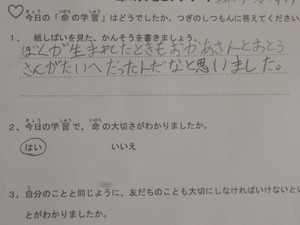 今日の「命の学習」はどうでしたか。つぎのしつもんに答えてください
1、 紙しばいを見た、かんそうを書きましょう。
ぼくが生まれたときもおかあさんとおとう
さんがたいへだったトだなと思いました。
2、今日の学習で、命の大切さがわかりましたか。
はい いいえ
3、自分のことと同じように、友だちのことも大切にしなければいけないとい
とがわかりましたか。